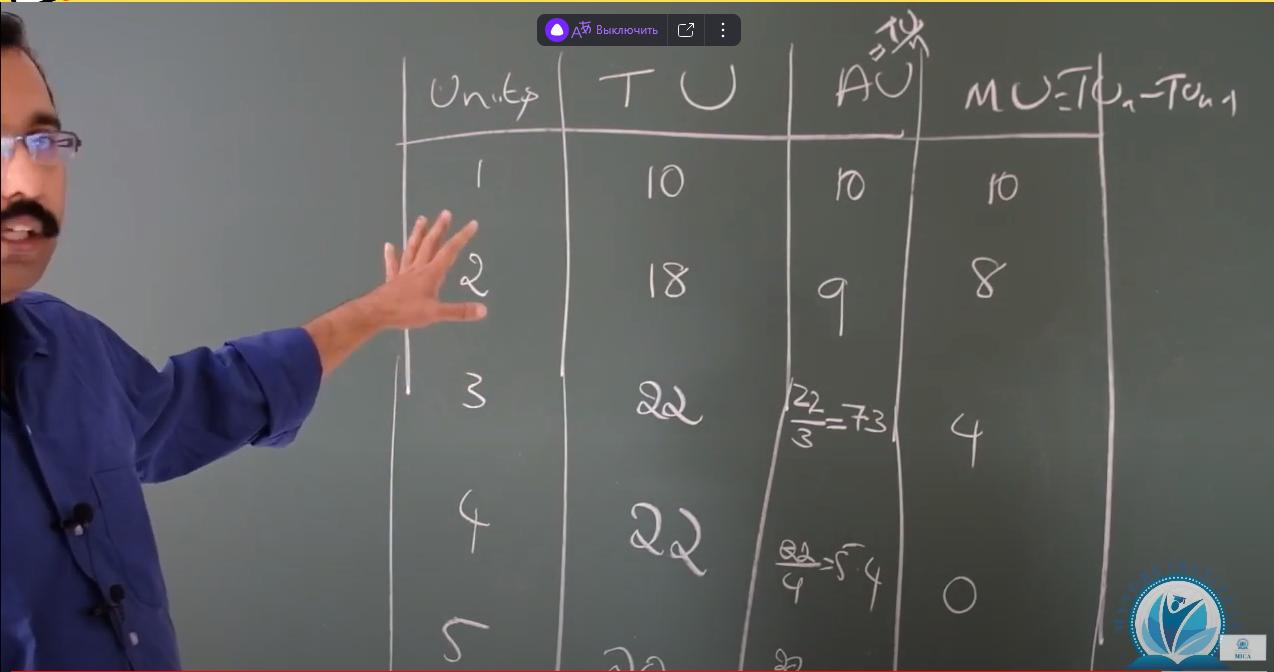 Выключить
= TU/n
Units TU AU MU=TUn-TUn-1
1 10 10 10
2 18 9 8
3 22 22/3=73 4
4 22 22/4=5.4 0
5
MICA